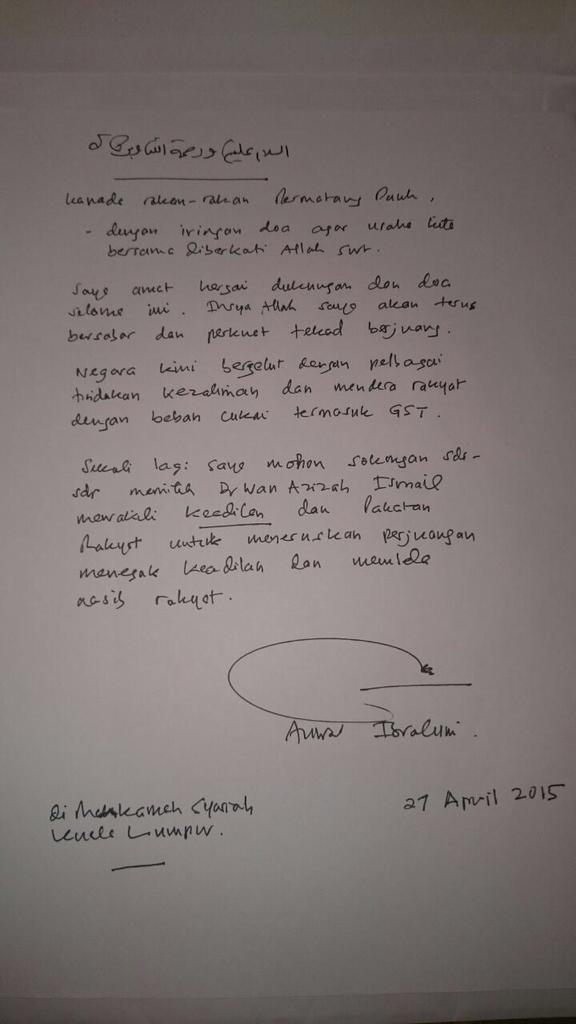 السلام عليكم ورحمة الله وبركاته
kepada rakan-rakan Permatang Pauh,
- dengan iringan doa agar usaha kita
bersama diberkati Allah swt.
Saya amat hargai dukungan dan doa
selama ini. Insya Allah saya akan terus
bersabar dan perkuat tekad berjuang.
Negara kini bergelut dengan pelbagai
tindakan kezaliman dan mendera rakyat
dengan beban cukai termasuk GST.
Sekali lagi saya mohon sokongan sdr-
sdr memilih Dr Wan Azizah Ismail
mewakili keadilan dan Pakatan
Rakyat untuk meneruskan perjuangan
menegak keadilan dan membela
nasib rakyat.
Anwar Ibrahim.
di Mahkamah Syariah
Kuala Lumpur.
27 April 2015